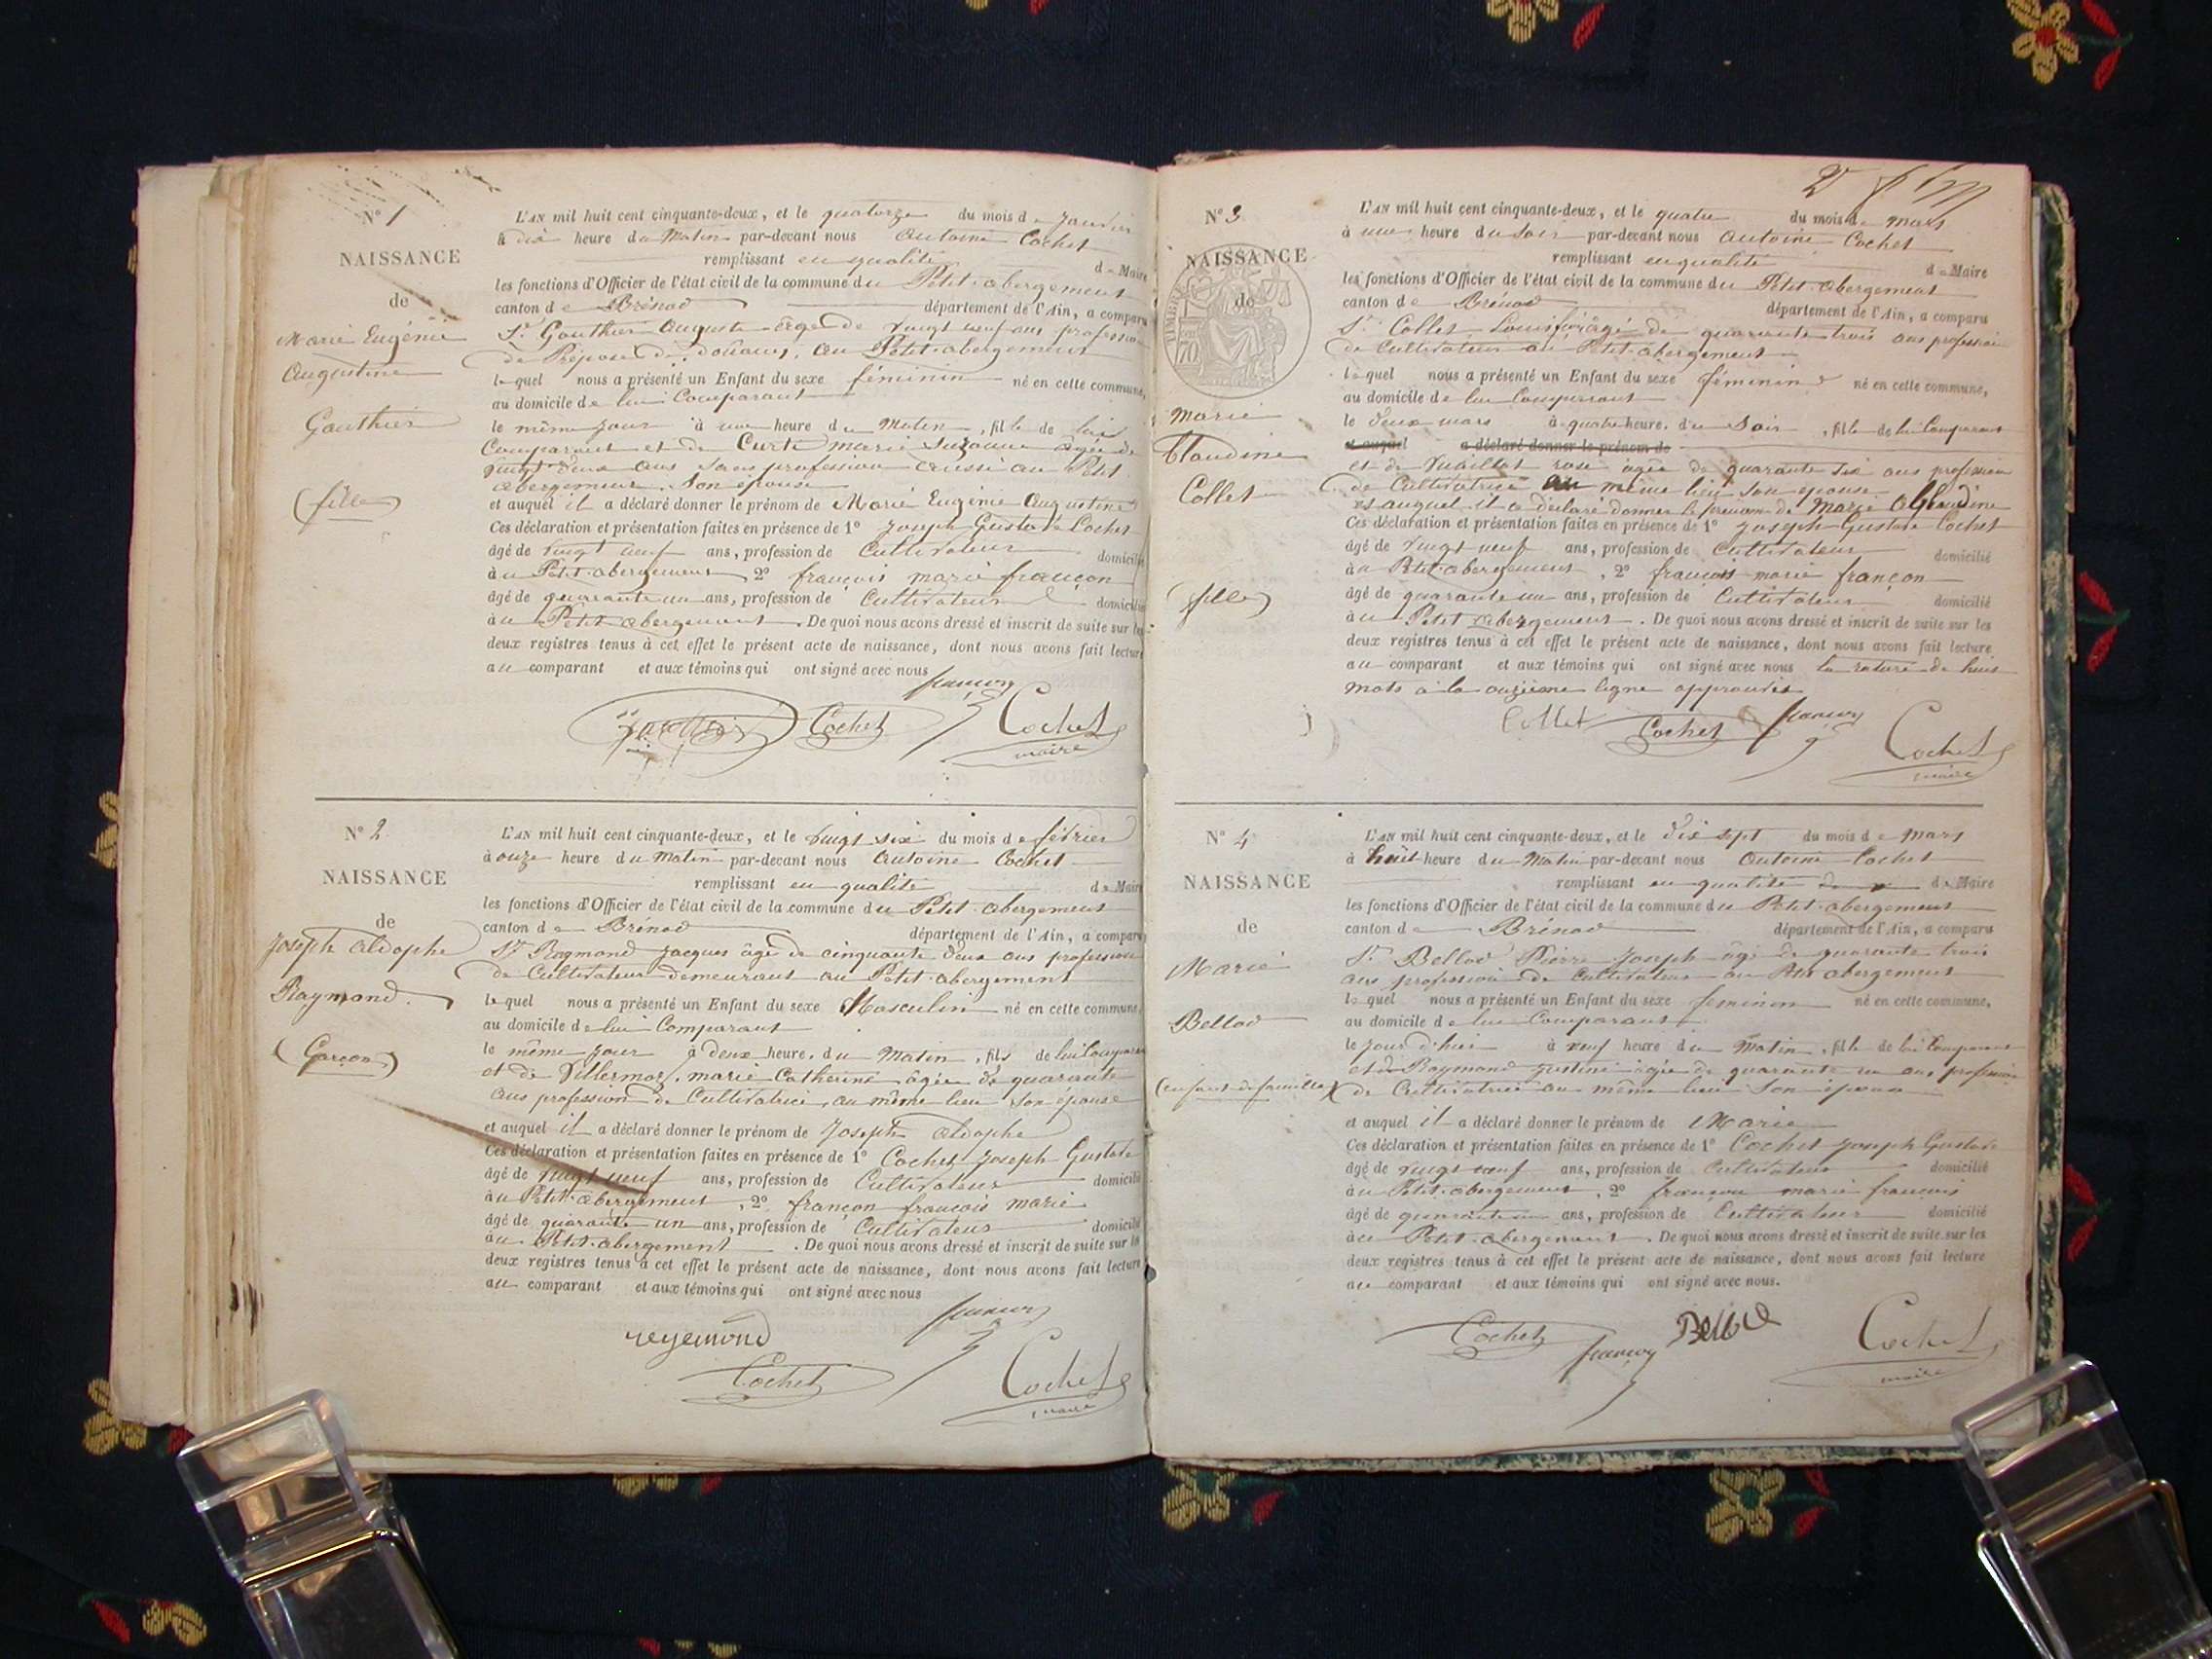 N° 1
NAISSANCE
de
Marie Eugénie
Augustine
Gauthier
(fille)
L'AN mil huit cent cinquante-deux, et le quatorze du mois de Janvier
à dix heure du Matin par-devant nous Antoine Cochet
remplissant en qualité de Maire
les fonctions d'Officier de l'état civil de la commune du Petit-abergement
canton de Brénod département de l'Ain, a comparu
Sr. Gauthier Auguste âgé de vingt neuf ans profession
de Préposé de douanes, au Petit-abergement
lequel nous a présenté un Enfant du sexe féminin né en cette commune,
au domicile de lui Comparant
le même jour à une heure du Matin, fille de lui
Comparant et de Curt marie Suzanne âgée de
vingt deux ans sans profession aussi au Petit
abergement. Son épouse
et auquel il a déclaré donner le prénom de Marie Eugénie Augustine
Ces déclaration et présentation faites en présence de 1° Joseph Gustave Cochet
âgé de vingt neuf ans, profession de Cultivateur domicilié
à au Petit-abergement, 2° françois marie françon
âgé de quarante un ans, profession de Cultivateur domicilié
à au Petit abergement. De quoi nous avons dressé et inscrit de suite sur les
deux registres tenus à cet effet le présent acte de naissance, dont nous avons fait lecture
au comparant et aux témoins qui ont signé avec nous
françon
Gauthier Cochet Cochet
maire
N° 2
NAISSANCE
de
Joseph aldophe
Raymond.
(Garçon)
L'AN mil huit cent cinquante-deux, et le vingt six du mois de février
à onze heure du matin par-devant nous Antoine Cochet
remplissant en qualité de Maire
les fonctions d'Officier de l'état civil de la commune du Petit-abergement
canton de Brénod département de l'Ain, a comparu
Sr. Raymond Jacques âgé de cinquante deux ans profession
de Cultivateur demeurant au Petit-abergement
lequel nous a présenté un Enfant du sexe Masculin né en cette commune,
au domicile de lui Comparant
le même jour à deux heure, du matin, fils de lui Comparant
et de Villermoz, marie Catherine âgée de quarante
ans profession de Cultivatrice, au même lieu son épouse
et auquel il a déclaré donner le prénom de Joseph aldophe
Ces déclaration et présentation faites en présence de 1° Cochet Joseph Gustave
âgé de vingt neuf ans, profession de Cultivateur domicilié
à au Petit-abergement, 2° françon françois marie
âgé de quarante un ans, profession de Cultivateur domicilié
à au Petit-abergement. De quoi nous avons dressé et inscrit de suite sur les
deux registres tenus à cet effet le présent acte de naissance, dont nous avons fait lecture
au comparant et aux témoins qui ont signé avec nous
reyemond françon
Cochet Cochet
maire
N° 3
NAISSANCE
de
marie
Claudine
Collet
(fille)
L'AN mil huit cent cinquante-deux, et le quatre du mois de mars
à une heure du soir par-devant nous Antoine Cochet
remplissant en qualité de Maire
les fonctions d'Officier de l'état civil de la commune du Petit-abergement
canton de Brénod département de l'Ain, a comparu
Sr. Collet Louis âgé de quarante trois ans profession
de Cultivateur au Petit-abergement
lequel nous a présenté un Enfant du sexe féminin né en cette commune,
au domicile de lui Comparant
le deux mars à quatre heure, du Soir, fille de lui Comparant
et auquel a déclaré donner le prénom de
et de rose âgée de quarante six ans profession
de Cultivatrice au même lieu son épouse
et auquel il a déclaré donner le prénom de Marie Claudine
Ces déclaration et présentation faites en présence de 1° Joseph Gustave Cochet
âgé de vingt neuf ans, profession de Cultivateur domicilié
à au Petit-abergement, 2° françois marie françon
âgé de quarante un ans, profession de Cultivateur domicilié
à au Petit abergement. De quoi nous avons dressé et inscrit de suite sur les
deux registres tenus à cet effet le présent acte de naissance, dont nous avons fait lecture
au comparant et aux témoins qui ont signé avec nous la rature de huit
mots à la onzième ligne approuvés
Collet Cochet françon
Cochet
maire
N° 4
NAISSANCE
de
Marie
Bellod
L'AN mil huit cent cinquante-deux, et le dix sept du mois de Mars
à huit heure du Matin par-devant nous Antoine Cochet
remplissant en qualité de Maire
les fonctions d'Officier de l'état civil de la commune du Petit-abergement
canton de Brénod département de l'Ain, a comparu
Sr. Bellod Pierre Joseph âgé de quarante trois
ans profession de Cultivateur au Petit abergement
lequel nous a présenté un Enfant du sexe féminin né en cette commune,
au domicile de lui Comparant
le jour d'hier à neuf heure du Matin, fille de lui Comparant
et de Raymond Justine âgée de quarante un ans, profession
de Cultivatrice au même lieu Son épouse
et auquel il a déclaré donner le prénom de Marie
Ces déclaration et présentation faites en présence de 1° Cochet Joseph Gustave
âgé de vingt neuf ans, profession de Cultivateur domicilié
à au Petit-abergement, 2° françon marie françois
âgé de quarante un ans, profession de Cultivateur domicilié
à au Petit-abergement. De quoi nous avons dressé et inscrit de suite sur les
deux registres tenus à cet effet le présent acte de naissance, dont nous avons fait lecture
au comparant et aux témoins qui ont signé avec nous.
Cochet françon Bellod Cochet
maire